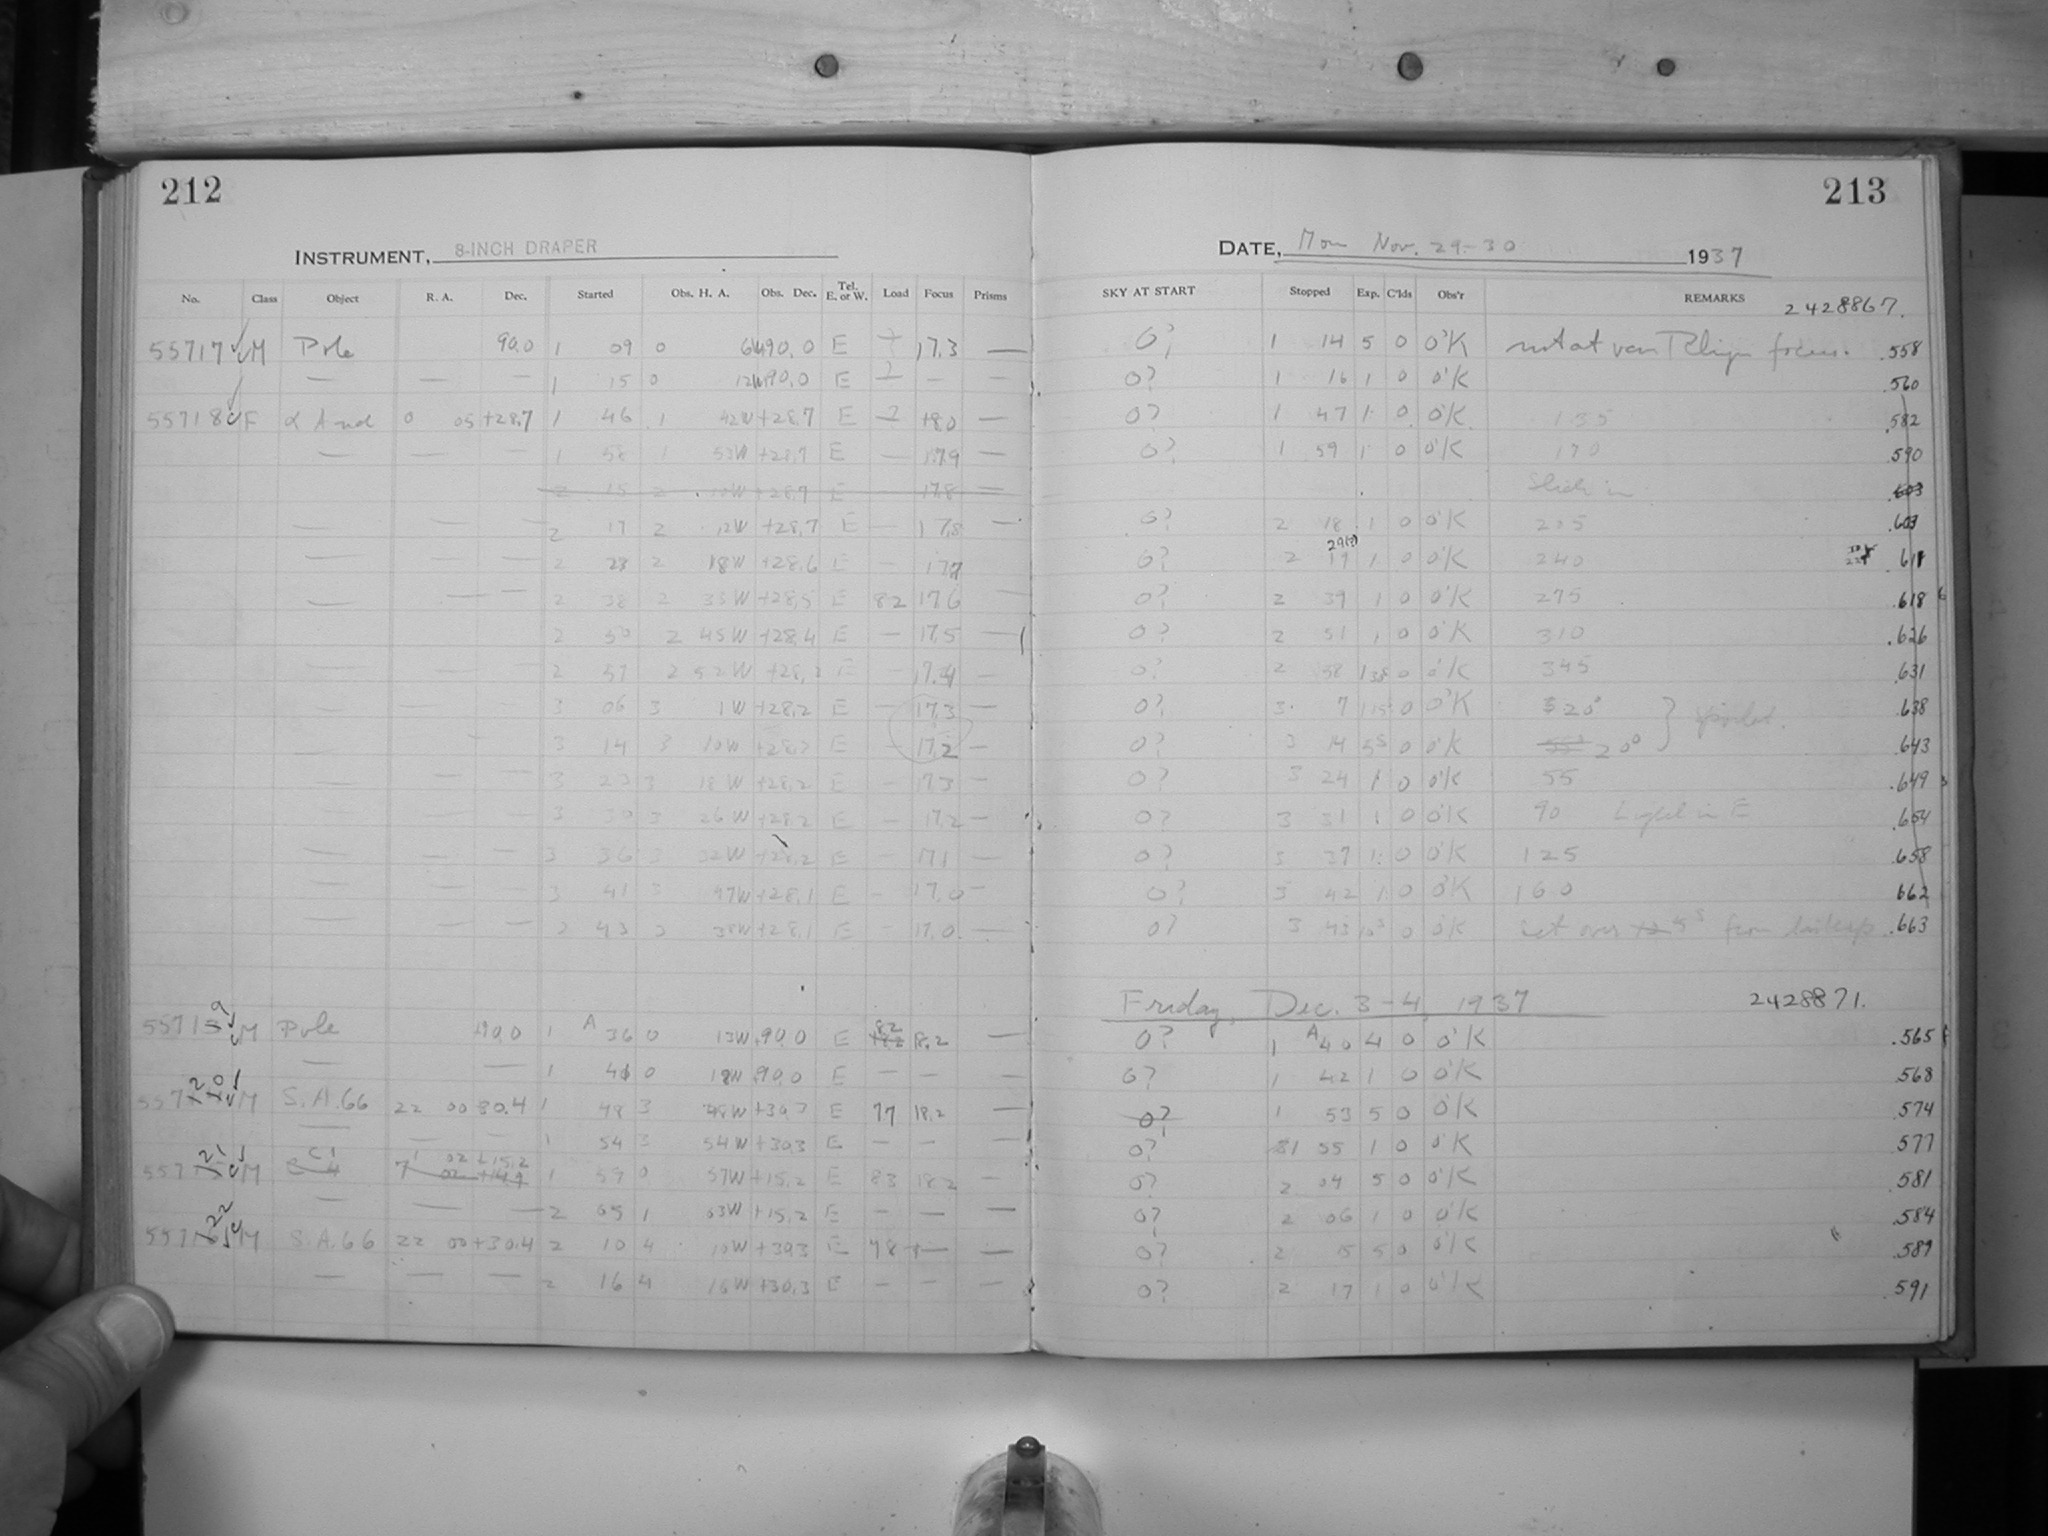 212
213
INSTRUMENT, 8-INCH DRAPER
DATE, Mon Nov. 29-30 1937
No. Class Object R. A. Dec. Started Obs. H. A. Obs. Dec. Tel. E. or W. Load Focus Prisms SKY AT START Stopped Exp. C'lds Obs'r REMARKS 2428867.
55717 M Pole 90.0 1 09 0 90.0 E 17.3 — 0? 1 14 5 0 O'K not at van Rhijn focus. .558
— — — 1 15 0 12W 90.0 E — — 0? 1 16 1 0 O'K .560
55718 F α And 0 05 +28.7 1 46 1 42W +28.7 E 18.0 — 0? 1 47 1 0 O'K 135 .582
— — — 1 58 1 53W +28.7 E — 17.9 — 0? 1 59 1 0 O'K 170 .590
2 15 2 10W +28.7 E 17.8 — .603
— — — 2 17 2 12W +28.7 E — 17.8 — 0? 2 18 1 0 O'K 205 .603
— — — 2 28 2 18W +28.6 E — 17.7 0? 2 29(?) 19 1 0 O'K 240 .611
— — — 2 38 2 33W +28.5 E 82 17.6 — 0? 2 39 1 0 O'K 275 .618
2 50 2 45W +28.4 E — 17.5 — 0? 2 51 1 0 O'K 310 .626
— — — 2 57 2 52W +28.2 E — 17.4 — 0? 2 58 0 O'K 345 .631
— — — 3 06 3 1W +28.2 E — 17.3 — 0? 3 7 0 O'K 20° .638
— — 3 14 3 10W +28.2 E — 17.2 — 0? 3 14 5s 0 O'K 20° .643
— — — 3 23 3 18W +28.2 E — 17.3 — 0? 3 24 1 0 O'K 55 .649
— — — 3 30 3 26W +28.2 E — 17.2 — 0? 3 31 1 0 O'K 90 Light in E .654
— — — 3 36 3 32W +28.2 E — 17.1 — 0? 3 37 1 0 O'K 125 .658
— — — 3 41 3 37W +28.1 E — 17.0 — 0? 3 42 1 0 O'K 160 662
— — — 43 3 +28.1 E — 17.0 — 0? 3 43 10s 0 O'K Set over from .663
Friday, Dec. 3-4, 1937 2428871.
55719 M Pole 90.0 1 A 36 0 13W 90.0 E 82 18.2 — 0? 1 A 40 4 0 O'K .565
— — 1 41 0 18W 90.0 E — — 0? 1 42 1 0 O'K .568
55720 M S.A.66 22 00 30.4 1 48 3 48W +30.3 E 77 18.2 0? 1 53 5 0 O'K .574
— — — 1 54 3 54W +30.3 E — — 0? 1 55 1 0 O'K .577
55721 M C1 02 +15.2 1 59 0 57W +15.2 E 83 18.2 — 0? 2 04 5 0 O'K .581
— — — 2 05 1 03W +15.2 E — — — 0? 2 06 1 0 O'K .584
55722 M S.A.66 22 00 +30.4 2 10 4 10W +30.3 E 78 — — 0? 2 15 5 0 O'K .589
— — — 2 16 4 16W +30.3 E — — — 0? 2 17 1 0 O'K .591